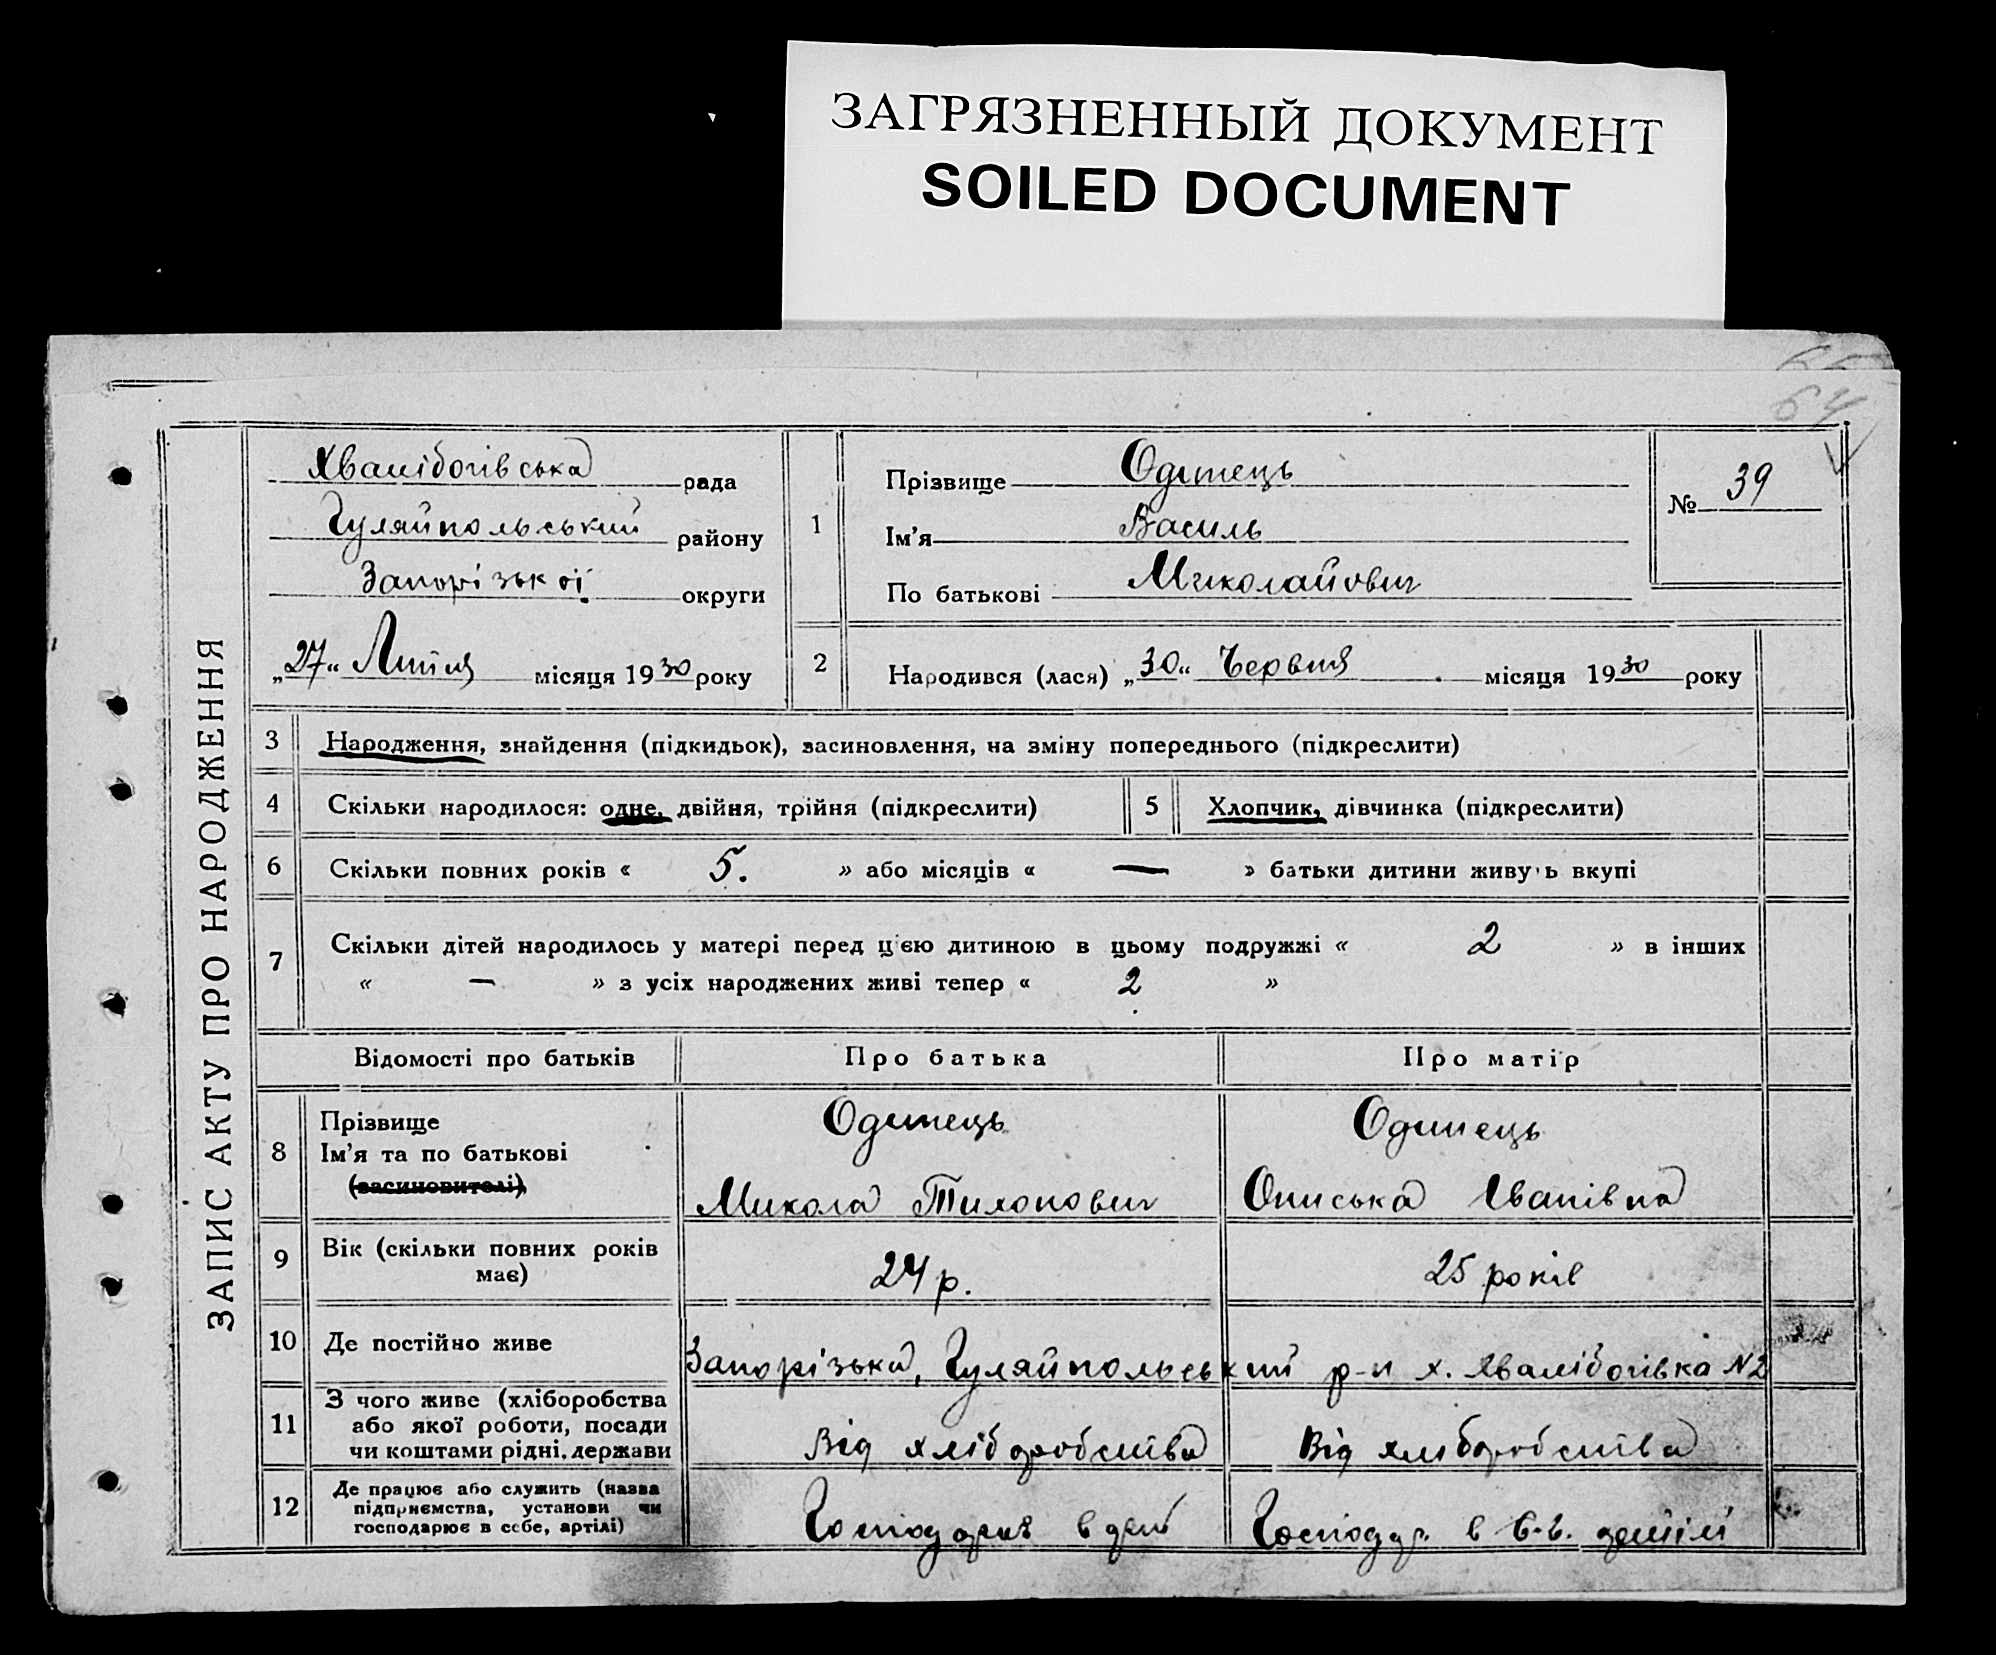 ЗАГРЯЗНЕННЫЙ ДОКУМЕНТ
SOILED DOCUMENT
64
ЗАПИС АКТУ ПРО НАРОДЖЕННЯ
Хвалібогівська рада
Гуляйпольський району
Запорізької округи
„27“ Липня місяця 1930 року
1
Прізвище Одинець
Ім'я Василь
По батькові Миколайович
№ 39
2 Народився (лася) „30“ Червня місяця 1930 року
3 Народження, знайдення (підкидьок), засиновлення, на зміну попереднього (підкреслити)
4 Скільки народилося: одне, двійня, трійня (підкреслити) 5 Хлопчик, дівчинка (підкреслити)
6 Скільки повних років « 5. » або місяців « — » батьки дитини живуть вкупі
7 Скільки дітей народилось у матері перед цією дитиною в цьому подружжі « 2 » в інших
« — » з усіх народжених живі тепер « 2 »
Відомості про батьків Про батька Про матір
8 Прізвище Одинець Одинець
Ім'я та по батькові
(засиновителі) Микола Тихонович Ониська Іванівна
9 Вік (скільки повних років має) 24 р. 25 років
10 Де постійно живе Запорізька, Гуляйпольський р-н х. Хвалібогівка N2
11 З чого живе (хліборобства
або якої роботи, посади
чи коштами рідні, держави Від хліборобства Від хліборобства
12 Де працює або служить (назва
підприємства, установи чи
господарює в себе, артілі) Господарює в арт Господар. в с.-г. артілі